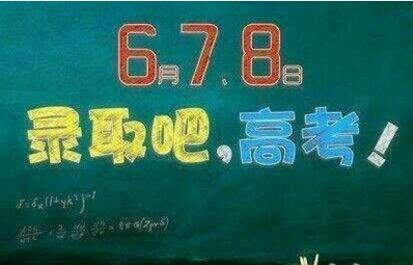 6月7、8日
录取吧,高考!